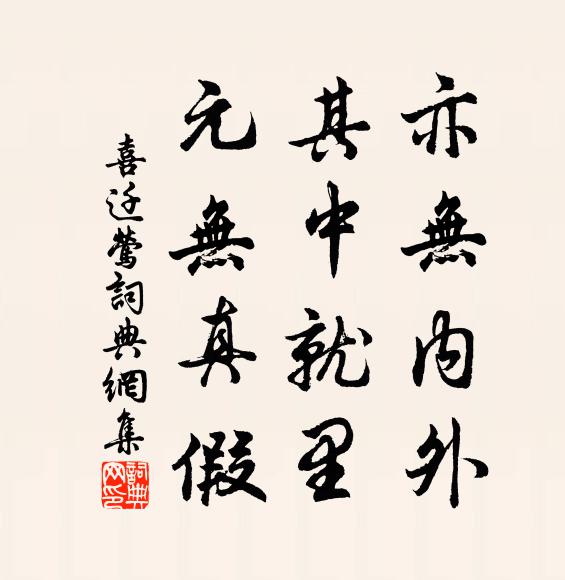 亦無内外
其中就里
元無真假
喜迁鶯詞典網集
詞典网印